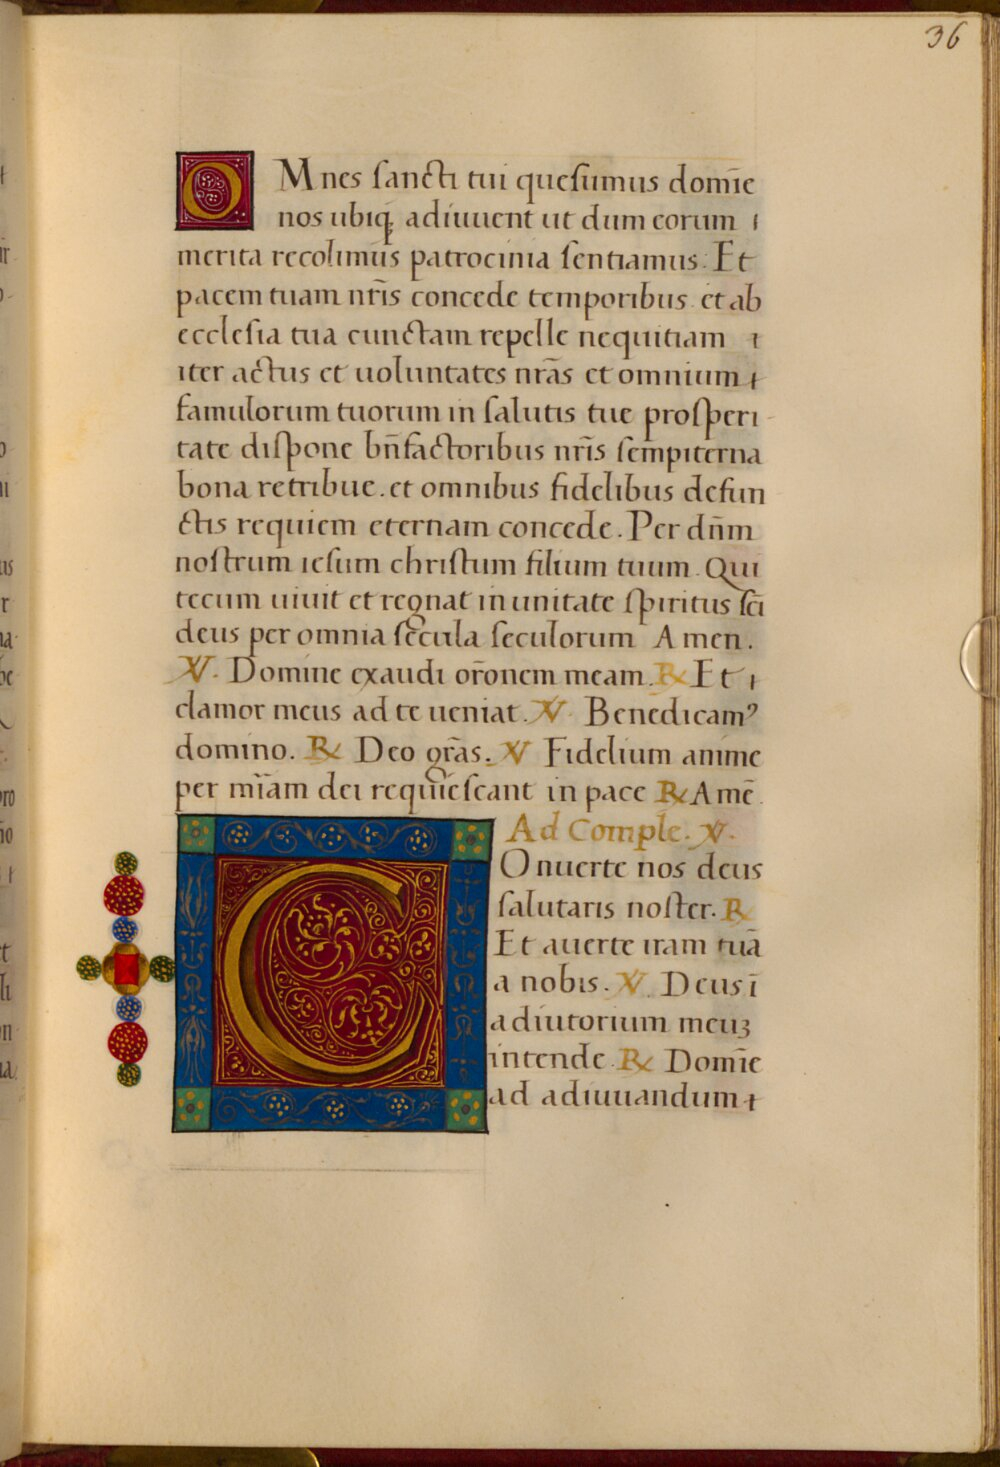 36
OMnes sancti tui quesumus domīe
nos ubiq; adiuuent ut dum eorum
merita recolimus patrocinia sentiamus. Et
pacem tuam nr̄is concede temporibus et ab
ecclesia tua cunctam repelle nequitiam
iter actus et uoluntates nr̄as et omnium
famulorum tuorum in salutis tue prosperi
tate dispone bn̄factoribus nr̄is sempiterna
bona retribue. et omnibus fidelibus defun
ctis requiem eternam concede. Per dn̄m
nostrum iesum christum filium tuum. Qui
tecum uiuit et regnat in unitate spiritus sc̄i
deus per omnia secula seculorum Amen.
℣. Domine exaudi or̄onem meam. ℞ Et
clamor meus ad te ueniat. ℣. Benedicamꝰ
domino. ℞ Deo gr̄as. ℣ Fidelium anime
per mīam dei requiescant in pace ℞ Amē.
Ad Comple. ℣.
COnuerte nos deus
salutaris noster. ℞
Et auerte iram tuā
a nobis. ℣. Deus ī
adiutorium meuꝫ
intende. ℞ Domīe
ad adiuuandum